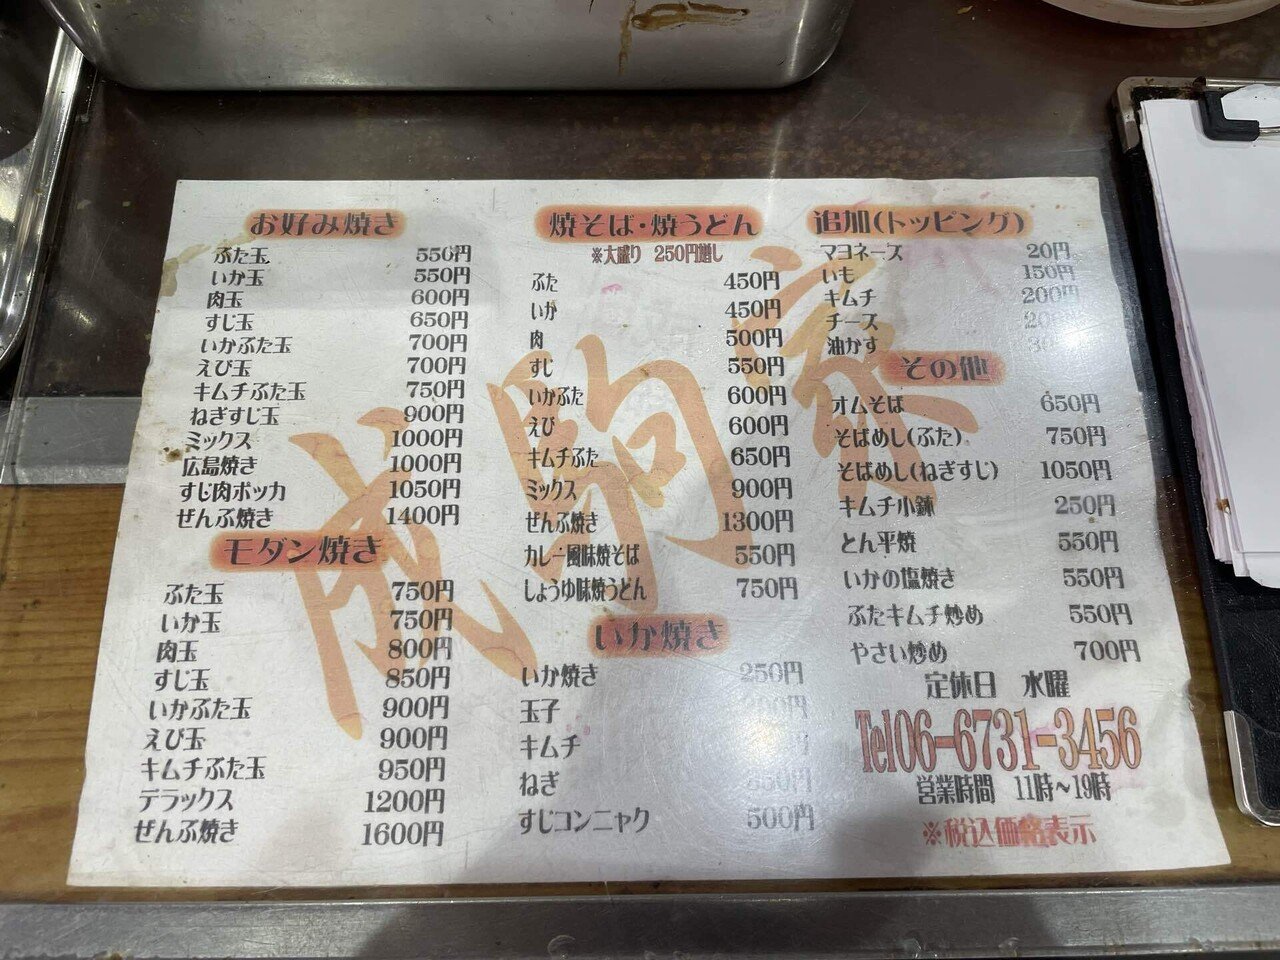 お好み焼き
ぶた玉 550円
いか玉 550円
肉玉 600円
すじ玉 650円
いかぶた玉 700円
えび玉 700円
キムチぶた玉 750円
ねぎすじ玉 900円
ミックス 1000円
広島焼き 1000円
すじ肉ポッカ 1050円
ぜんぶ焼き 1400円
モダン焼き
ぶた玉 750円
いか玉 750円
肉玉 800円
すじ玉 850円
いかぶた玉 900円
えび玉 900円
キムチぶた玉 950円
デラックス 1200円
ぜんぶ焼き 1600円
焼そば・焼うどん
※大盛り 250円増し
ぶた 450円
いか 450円
肉 500円
すじ 550円
いかぶた 600円
えび 600円
キムチぶた 650円
ミックス 900円
ぜんぶ焼き 1300円
カレー風味焼そば 550円
しょうゆ味焼うどん 750円
いか焼き
いか焼き 250円
玉子
キムチ
ねぎ
すじコンニャク 500円
追加(トッピング)
マヨネーズ 20円
いも 150円
キムチ 200円
チーズ
油かす
その他
オムそば 650円
そばめし(ぶた) 750円
そばめし(ねぎすじ) 1050円
キムチ小鉢 250円
とん平焼 550円
いかの塩焼き 550円
ぶたキムチ炒め 550円
やさい炒め 700円
定休日 水曜
Tel06-6731-3456
営業時間 11時~19時
※税込価格表示